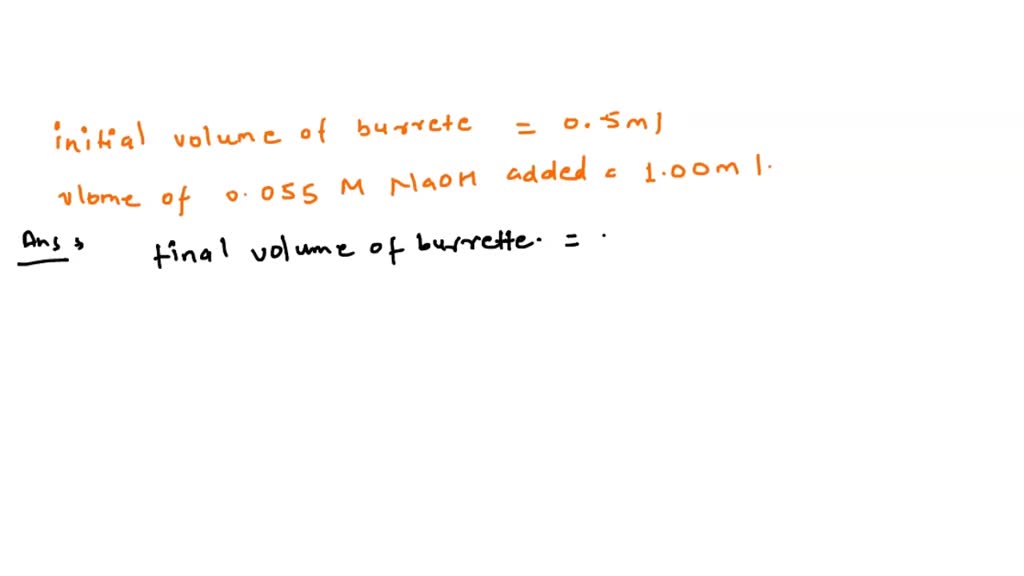 initial volume of burrete = 0.5ml
vlome of 0.055 M NaOH added = 1.00ml.
Ans → final volume of burrette. = .